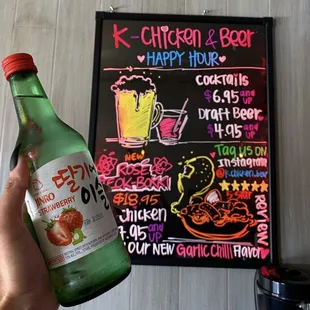 K-CHICKEN & BEER
HAPPY HOUR
COCKTAILS
$6.95 and UP
DRAFT BEER
$4.95 and UP
NEW
ROSE
$18.95
CHICKEN
7.95 and UP
OUR NEW GARLIC CHILLI FLAVOR
TAG US ON
INSTAGRAM
@k.chicken.bar
REVIEW
딸기에
이슬
JINRO
STRAWBERRY